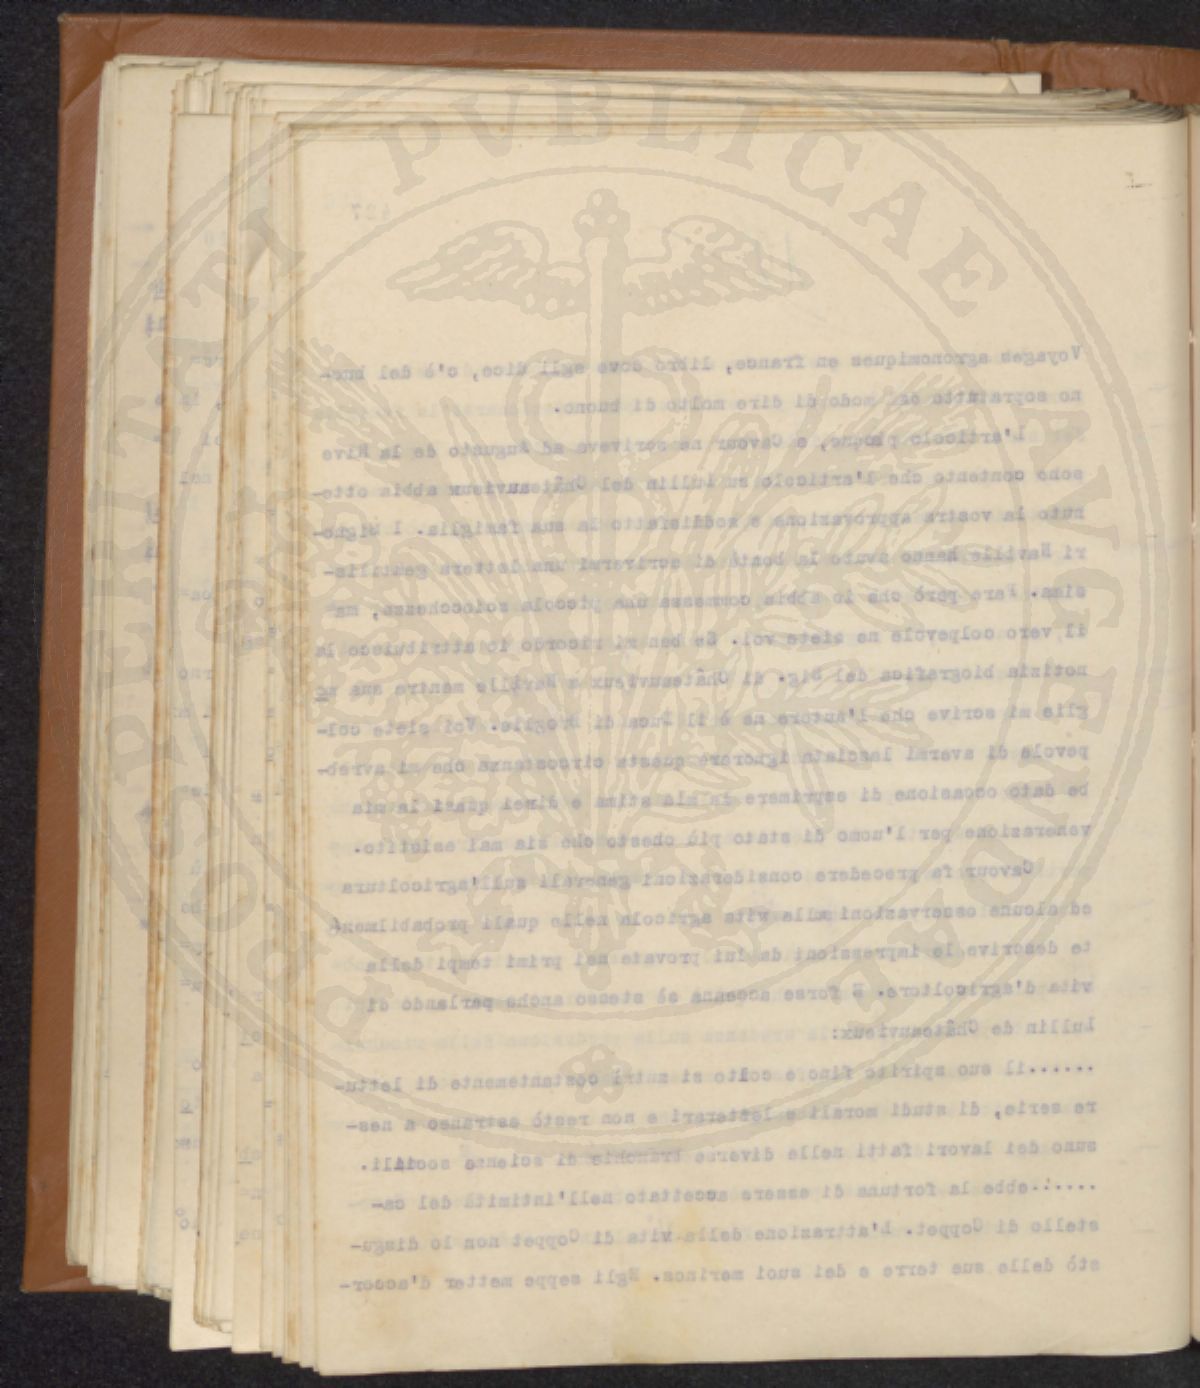 427
Voyages agronomiques en france, libro dove egli dice, c'è del buo-
no sopratutto dal modo di dire molto di buono.
L'articolo piacque, e Cavour ne scriveva ad Augusto de la Rive
sono contento che l'articolo su Lullin del Châteauvieux abbia otte-
nuto la vostra approvazione e soddisfatto la sua famiglia. I Signo-
ri Naville hanno avuto la bontà di scrivermi una lettera gentilis-
sima. Pare però che io abbia commessa una piccola sciocchezza, ma
il vero colpevole ne siete voi. Se ben mi ricordo io attribuisco la
notizia biografica del Sig. di Châteauvieux a Naville mentre sua mo
glie mi scrive che l'autore ne è il Duca di Broglie. Voi siete col-
pevole di avermi lasciato ignorare questa circostanza che mi avreb-
be dato occasione di esprimere la mia stima e direi quasi la mia
venerazione per l'uomo di stato più onesto che sia mai esistito.
Cavour fa precedere considerazioni generali sull'agricoltura
ed alcune osservazioni alla vita agricola nelle quali probabilmen
te descrive le impressioni da lui provate nei primi tempi della
vita d'agricoltore. E forse accenna sè stesso anche parlando di
Lullin de Châteauvieux:
......il suo spirito fino e colto si nutrì costantemente di lettu-
re serie, di studi morali e letterari e non restò estraneo a nes-
suno dei lavori fatti nelle diverse branchie di scienze sociali.
......ebbe la fortuna di essere accettato nell'intimità del ca-
stello di Coppet. L'attrazione della vita di Coppet non lo disgu-
stò delle sue terre e dei suoi merinos. Egli seppe metter d'accor-
PROSPERITATI PVBLICAE AVGENDAE